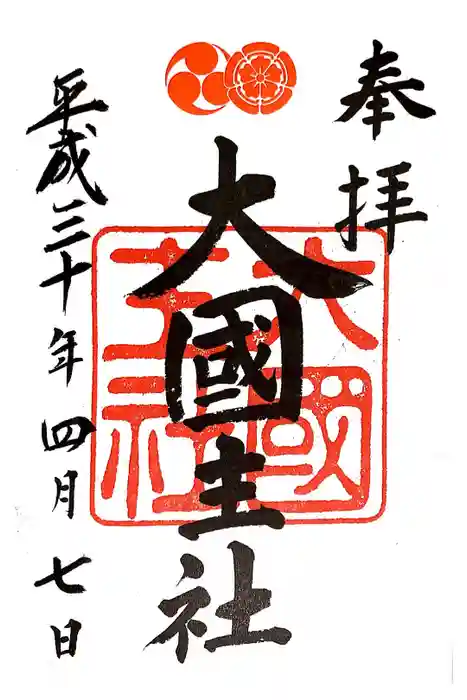 奉拝
大國主社
大國主社
平成三十年四月七日